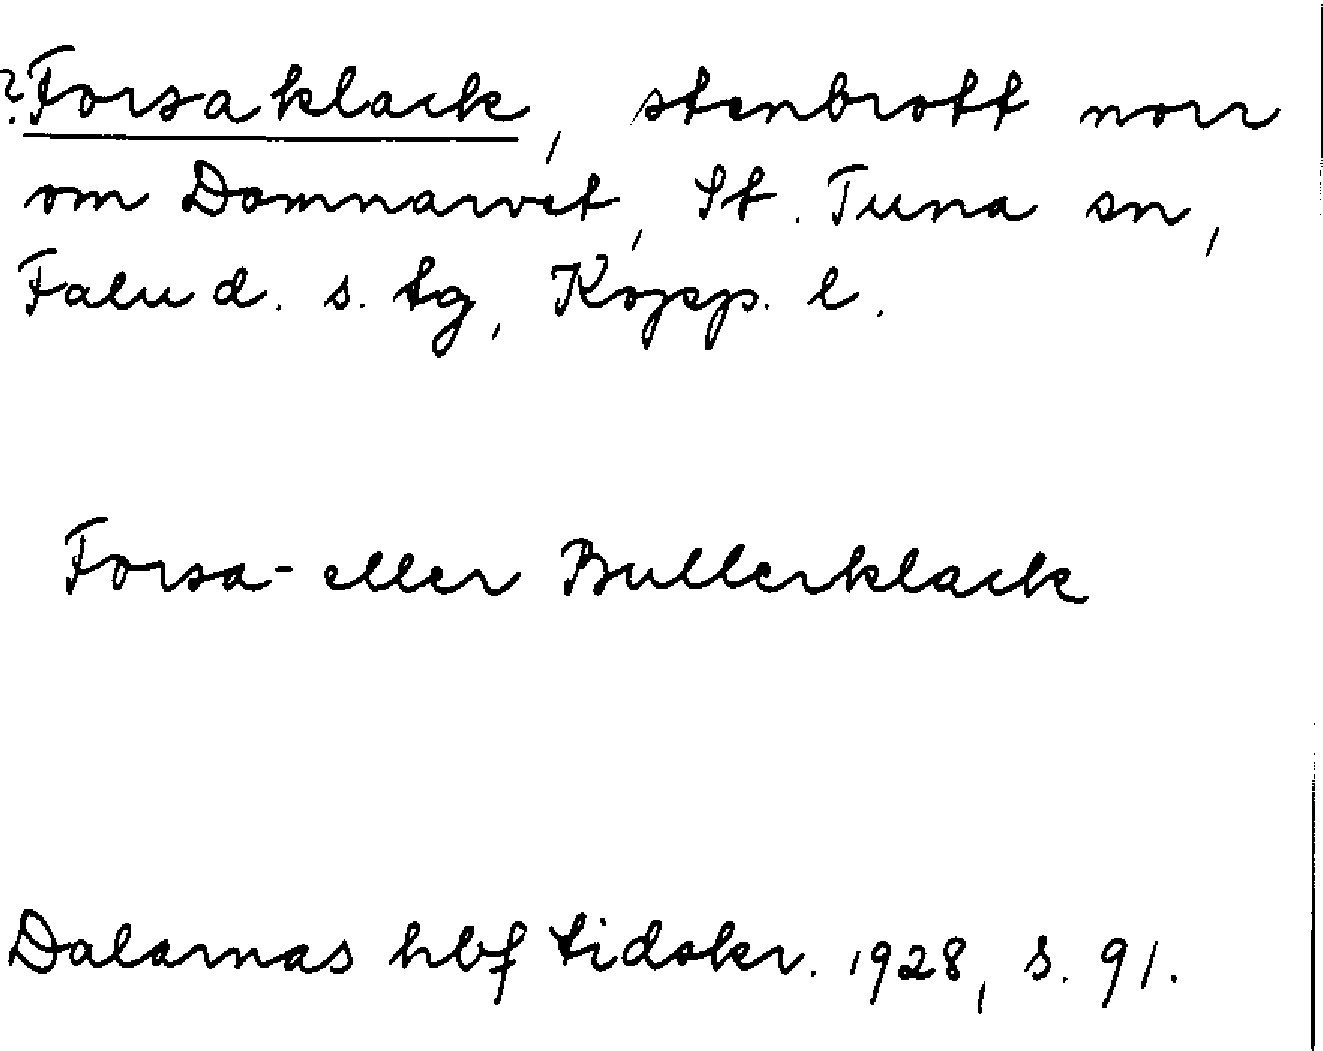 ?Forsaklack, stenbrott norr
om Domnarvet, St. Tuna sn,
Falu d. s. tg, Kopp. l.
Forsa- eller Bullerklack
Dalarnas hbf tidskr. 1928, s. 91.